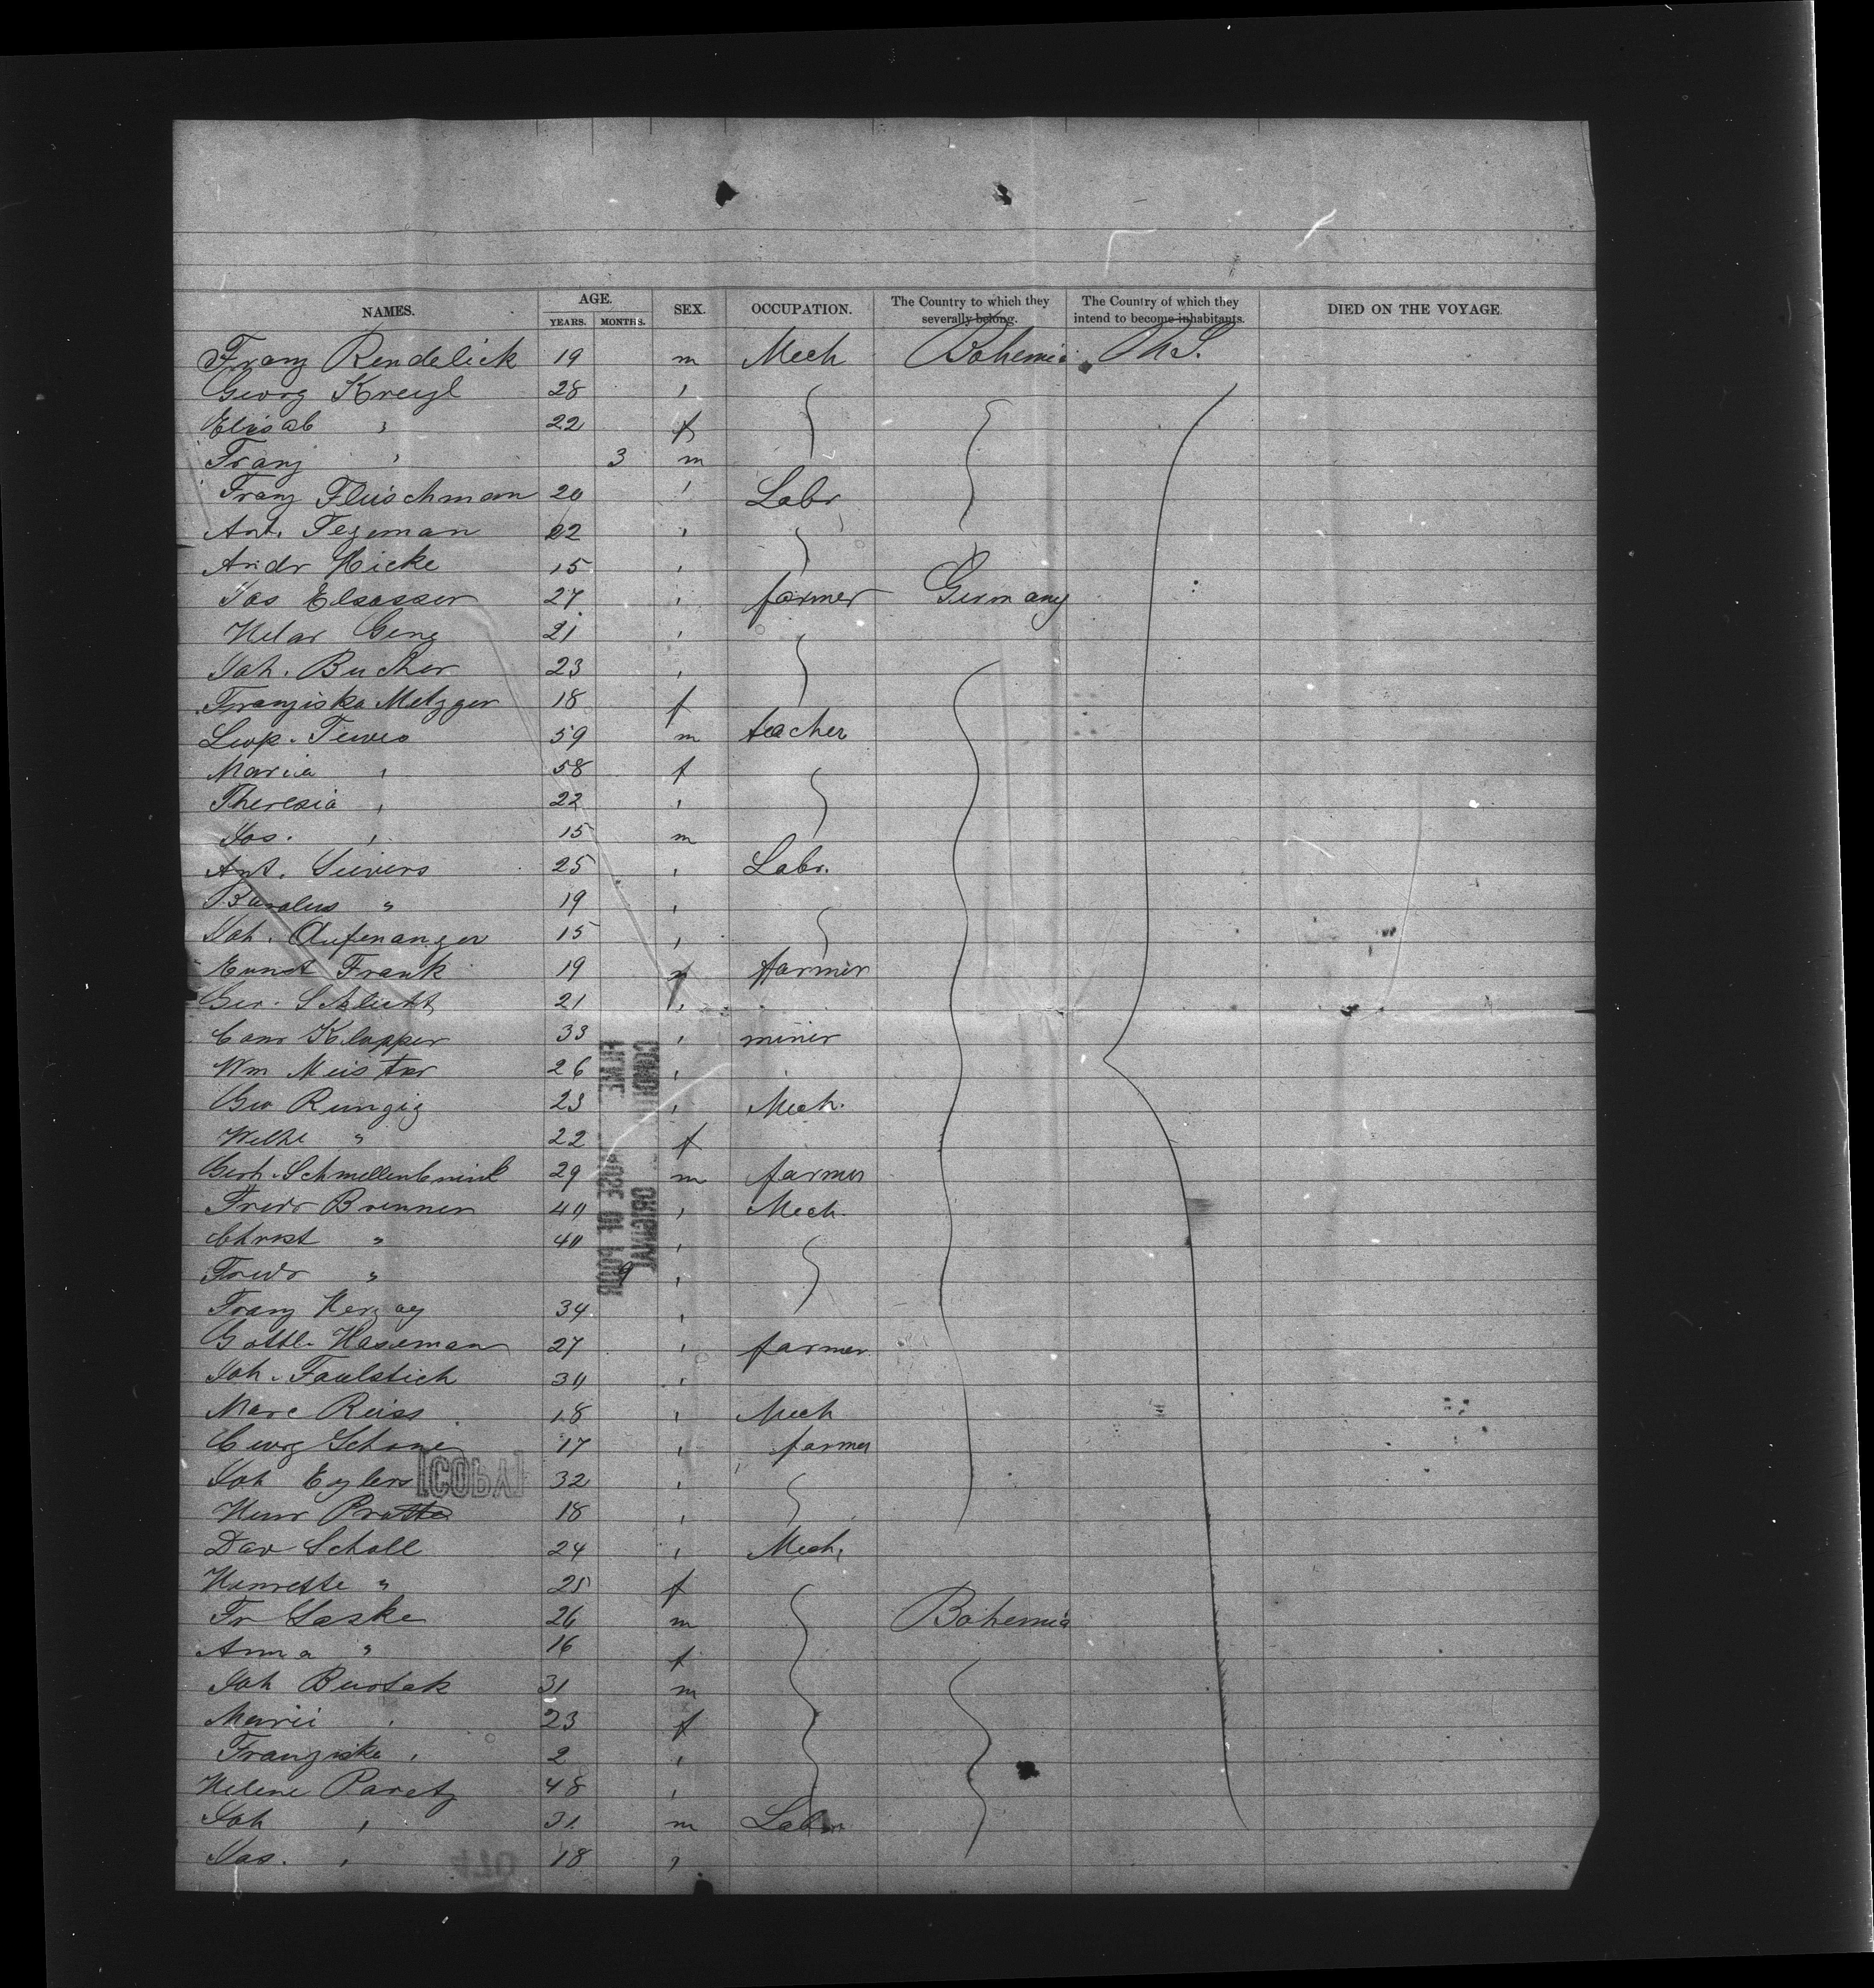 NAMES. AGE. YEARS. MONTHS. SEX. OCCUPATION. The Country to which they severally belong. The Country of which they intend to become inhabitants. DIED ON THE VOYAGE.
Franz Rendelick 19 m Mech Bohemia U.S.
Georg Kreyl 28 "
Elisab " 22 f
Franz " 3 m
Franz Fleischman 20 " Labr
Ant. Tezeman 22 "
Andr Hicke 15 "
Jos Elsasser 27 " farmer Germany
Helar Geng 21 "
Joh. Bucher 23 "
Franziska Metzger 18 f
Leop. Tewes 59 m teacher
Maria " 58 f
Theresia " 22 "
Jos. " 15 m
Ant. Sievers 25 " Labr.
" 19 "
Joh. Aufenanger 15 "
Ernst Frank 19 " farmer
Ger. Schlicht 21 "
Klapper 33 " miner
Wm Meister 26 "
Geo Rungig 23 " Mech.
Wilhe " 22 f
Gerh. 29 m farmer
Fredr Brenner 40 " Mech.
Christ " 40 "
Fredr " 9 "
Franz Herzog 34 "
Gottl. Haseman 27 " farmer
Joh. Faulstich 30 "
Marc Reiss 18 " Mech
Georg Schone 17 " farmer
Joh Eylers 32 "
[COPY]
Henr Pratte 18 "
Dav Scholl 24 " Mech.
Henrette " 25 f
Fr Laska 26 m Bohemia
Anna " 16 f
Joh 31 m
Marii " 23 f
Franziska " 2 "
Helene Paretz 48 "
Joh " 31 m Labr
Jos. " 18 "